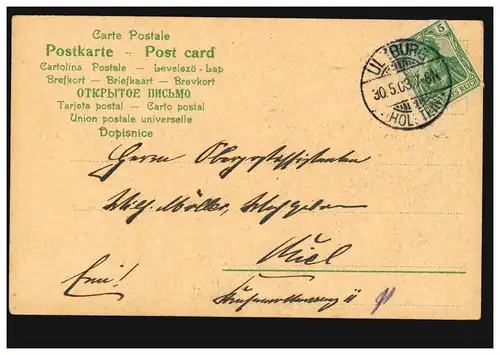 Carte Postale
Postkarte – Post card
Cartolina Postale – Levelező-Lap
Brefkort – Briefkaart – Brevkort
ОТКРЫТОЕ ПИСЬМО
Tarjeta postal – Carto postal
Union postale universelle
Dopisnice
5
ULZBURG
30.5.03. 7-8N
(HOLSTEIN)
Herrn Oberpostassistenten
Wilh. Möller,
Kiel